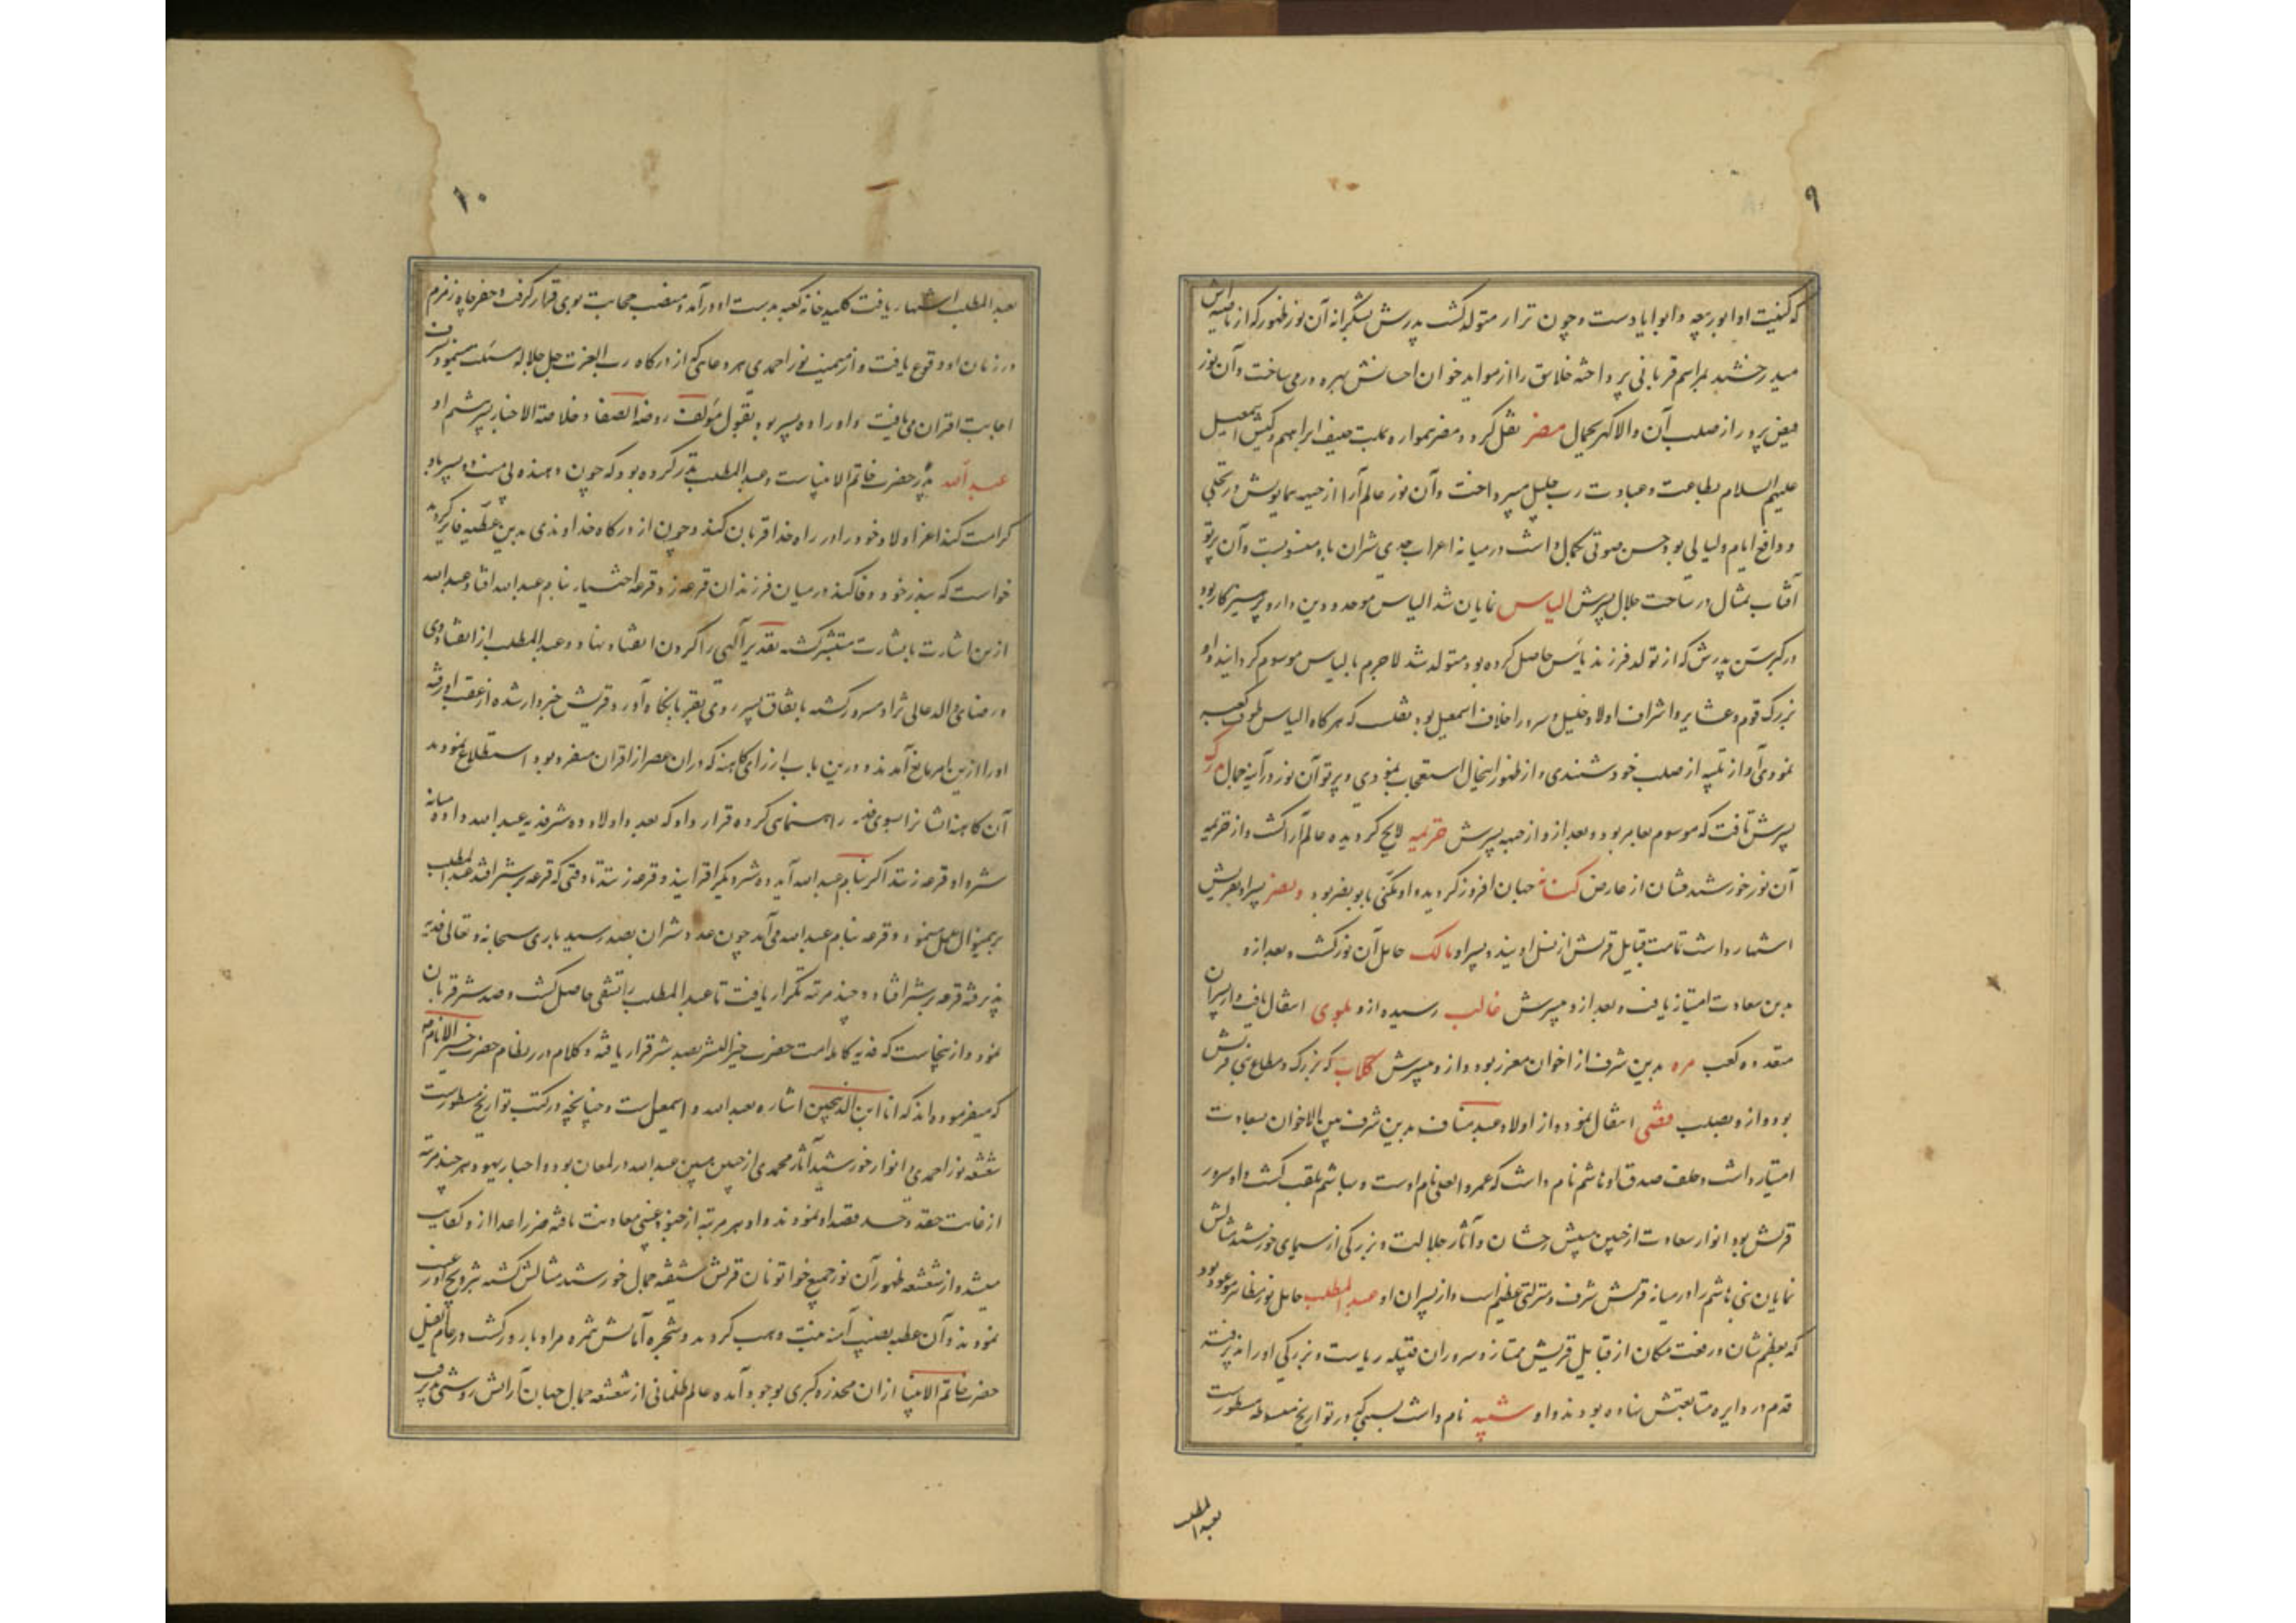 ٩
که کنیت او ابو ربیعه و ابو ایاد است و چون نزار متولد کشت پدرش بشکرانه آن نور ظهور که از ناصیه اش
میدرخشید بمراسم قربانی پرداخته خلایق را از مواید خوان احسانش بهره ور می ساخت و آن نور
فیض پرور از صلب آن والا کهر بجمال مضر نقل کرد و مضر همواره بملت حنیف ابراهیم و کیش اسمعیل
علیهم السلام بطاعت و عبادت رب جلیل میپرداخت و آن نور عالم آرا از جبهه همایونش در تجلی
و دافع ایام و لیالی بود حسن صوتی بکمال داشت در میانه اعراب حدی شتران باو منسوبست و آن پرتو
آفتاب تمثال در ساحت جلال پسرش الیاس نمایان شد الیاس موحد و دین دار و پرهیزکار بود
در کبر سن پدرش که از تولد فرزند یأس حاصل کرده بود متولد شد لاجرم بالیاس موسوم کردانید و او
بزرک قوم و عشایر و اشراف اولاد خلیل و سرور اخلاف اسمعیل بود نقلست که هرکاه الیاس طوف کعبه
نمودی آواز تلبیه از صلب خود شنیدی و از ظهور اینحال استعجاب نمودی و پرتو آن نور در آینه جمال مدرکه
پسرش تافت که موسوم بعامر بود و بعد از و از جبهه پسرش خزیمه لایح کردیده عالم آرا کشت و از خزیمه
آن نور خورشید نشان از عارض کنانه جهان افروز کردیده او مکنی بابو نضر بود و نضر پسر او بقریش
اشتهار داشت تمامت قبایل قریش از نسل اویند و پسر او مالک حامل آن نور کشت و بعد از و
بدین سعادت امتیاز یافت و بعد از و بپسرش غالب رسیده از و بلوی انتقال یافت و از پسران
متعدده کعب مره بدین شرف از اخوان معزز بود و از و بپسرش کلاب که بزرک و مطاع بنی قریش
بود و از و بصلب قصی انتقال نموده از اولاد عبد مناف بدین شرف بین الاخوان سعادت
امتیاز داشت و خلف صدق او هاشم نام داشت که عمرو العلی نام اوست و بهاشم ملقب کشت و او سرور
قریش بود انوار سعادت از جبین مبینش رخشان و آثار جلالت و بزرکی از سیمای خورشید مثالش
نمایان بنی هاشم را در میانه قریش شرف و منزلتی عظیم است و از پسران او عبد المطلب حامل نور مظاهر موعود بود
که بعظم شان و رفعت مکان از قبایل قریش ممتاز و سروران قبیله ریاست و بزرکی او را پذیرفته
قدم در دایره متابعتش نهاده بودند و او شیبه نام داشت بسببی که در تواریخ مبسوطه مسطورست
بعبد المطلب
١٠
بعبد المطلب اشتهار یافت کلید خانه کعبه بدست او درآمد و منصب حجابت بوی قرار کرفت و حفر چاه زمزم
در زمان او وقوع یافت و از میمنت نور احمدی هر دعائی که از درکاه رب العزت جل جلاله مسئلت مینمود بشرف
اجابت اقتران می یافت و او را ده پسر بود بقول مؤلف روضة الصفا و خلاصة الاخبار پسر ششم او
عبد الله پدر حضرت خاتم الانبیاست و عبد المطلب نذر کرده بود که چون واهب بی منت ده پسر باو
کرامت کند اعز اولاد خود را در راه خدا قربان کند و چون از درکاه خداوندی بدین عطیه فایز کردید
خواست که بنذر خود وفا کند در میان فرزندان قرعه زد قرعه اختیار بنام عبد الله افتاد عبد الله
ازین اشارت با بشارت مستبشر کشته تقدیر آلهی را کردن انقیاد نهاد و عبد المطلب از انقیاد وی
و رضای والد عالی نژاد مسرور کشته باتفاق پسر روی بقربانکاه آورد قریش خبردار شده از عقب او رفته
او را ازین امر مانع آمدند و درین باب از رای کاهنه که در ان عصر از اقران منفرد بود استطلاع نمودند
آن کاهنه ایشان را بسوی فدیه راهنمائی کرده قرار داد که بعدد اولاد ده شتر فدیه عبد الله داده میانه
شتر و او قرعه زنند اکر بنام عبد الله آید ده شتر دیکر افزایند و قرعه زنند تا وقتی که قرعه بر شتر افتد عبد المطلب
برینمنوال عمل مینمود و قرعه بنام عبد الله می آمد چون عدد شتران بصد رسید باری سبحانه و تعالی فدیه
پذیرفته قرعه بر شتر افتاد و چند مرتبه تکرار یافت تا عبد المطلب را تشفی حاصل کشت و صد شتر قربان
نمود و از ینجاست که فدیه کامله امت حضرت خیر البشر بصد شتر قرار یافته و کلام درر نظام حضرت خیر الانام
که میفرموده اند که انا ابن الذبیحین اشاره بعبد الله و اسمعیل است و چنانچه در کتب تواریخ مسطورست
شعشه نور احمدی و انوار خورشید آثار محمدی از جبین مبین عبد الله در لمعان بود و احبار یهود هر چند مرتبه
از غایت حقد و حسد قصد او نمودند و او هر مرتبه از جنود غیبی معاونت یافته ضرر اعدا از و کفایت
میشد و از شعشعه ظهور آن نور جمیع خواتونان قریش شیفته جمال خورشید مثالش کشته بتزویج او رغبت
نمودند و آن عطیه نصیب آمنه بنت وهب کردید و شجره آمالش بثمره مراد بارور کشت و در عام الفیل
حضرت خاتم الانبیا از ان مخدره کبری بوجود آمده عالم ظلمانی از شعشعه جمال جهان آرایش روشنی پذیرفت